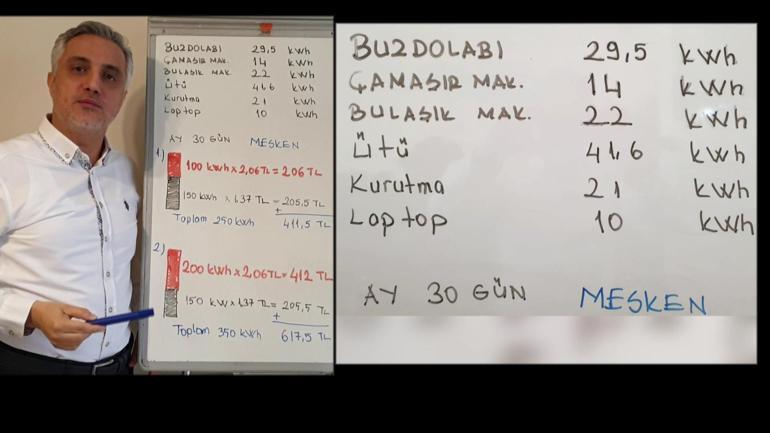 BUZDOLABI 29,5 kWh
ÇAMAŞIR MAK. 14 kWh
BULAŞIK MAK. 22 kWh
ütü 41,6 kWh
Kurutma 21 kWh
Laptop 10 kWh
AY 30 GÜN MESKEN
1)
100 kWh x 2,06 TL = 206 TL
150 kWh x 1.37 TL = 205,5 TL
+
Toplam 250 kWh 411,5 TL
2)
200 kWh x 2,06 TL = 412 TL
150 kW x 1,37 TL = 205,5 TL
+
Toplam 350 kWh 617,5 TL
BUZDOLABI 29,5 kWh
ÇAMAŞIR MAK. 14 kWh
BULAŞIK MAK. 22 kWh
ütü 41,6 kWh
Kurutma 21 kWh
Laptop 10 kWh
AY 30 GÜN MESKEN